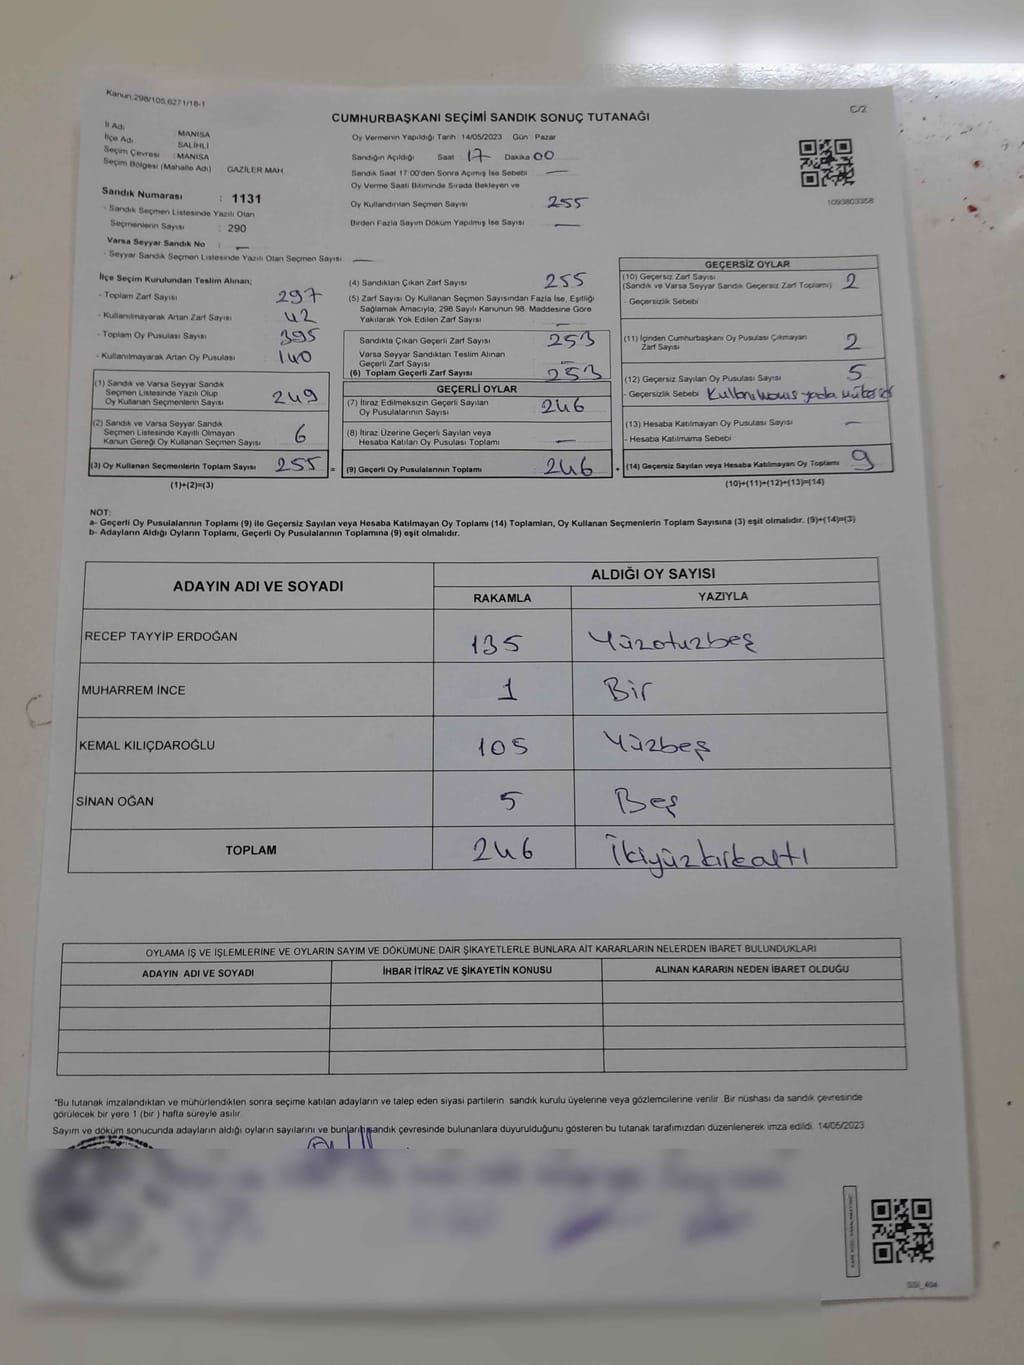 Kanun.298/105,6271/18-1
CUMHURBAŞKANI SEÇİMİ SANDIK SONUÇ TUTANAĞI
C/2
İl Adı MANİSA
İlçe Adı SALİHLİ
Seçim Çevresi : MANİSA
Seçim Bölgesi (Mahalle Adı) GAZİLER MAH
Sandık Numarası : 1131
- Sandık Seçmen Listesinde Yazılı Olan
Seçmenlerin Sayısı : 290
Varsa Seyyar Sandık No :
- Seyyar Sandık Seçmen Listesinde Yazılı Olan Seçmen Sayısı:
Oy Vermenin Yapıldığı Tarih : 14/05/2023 Gün : Pazar
Sandığın Açıldığı Saat 17 Dakika 00
Sandık Saat 17.00'den Sonra Açımış İse Sebebi
Oy Verme Saati Bitiminde Sırada Bekleyen ve
Oy Kullandırılan Seçmen Sayısı 255
Birden Fazla Sayım Döküm Yapılmış İse Sayısı
1093803358
İlçe Seçim Kurulundan Teslim Alınan;
- Toplam Zarf Sayısı 297
- Kullanılmayarak Artan Zarf Sayısı 42
- Toplam Oy Pusulası Sayısı 395
- Kullanılmayarak Artan Oy Pusulası 140
(1) Sandık ve Varsa Seyyar Sandık
Seçmen Listesinde Yazılı Olup
Oy Kullanan Seçmenlerin Sayısı 249
(2) Sandık ve Varsa Seyyar Sandık
Seçmen Listesinde Kayıtlı Olmayan
Kanun Gereği Oy Kullanan Seçmen Sayısı 6
(3) Oy Kullanan Seçmenlerin Toplam Sayısı 255 =
(1)+(2)=(3)
(4) Sandıktan Çıkan Zarf Sayısı 255
(5) Zarf Sayısı Oy Kullanan Seçmen Sayısından Fazla İse, Eşitliği
Sağlamak Amacıyla; 298 Sayılı Kanunun 98. Maddesine Göre
Yakılarak Yok Edilen Zarf Sayısı
Sandıkta Çıkan Geçerli Zarf Sayısı 253
Varsa Seyyar Sandıktan Teslim Alınan
Geçerli Zarf Sayısı
(6) Toplam Geçerli Zarf Sayısı 253
GEÇERLİ OYLAR
(7) İtiraz Edilmeksizin Geçerli Sayılan
Oy Pusulalarının Sayısı 246
(8) İtiraz Üzerine Geçerli Sayılan veya
Hesaba Katılan Oy Pusulası Toplamı
(9) Geçerli Oy Pusulalarının Toplamı 246 +
GEÇERSİZ OYLAR
(10) Geçersiz Zarf Sayısı 2
(Sandık ve Varsa Seyyar Sandık Geçersiz Zarf Toplamı)
- Geçersizlik Sebebi
(11) İçinden Cumhurbaşkanı Oy Pusulası Çıkmayan
Zarf Sayısı 2
(12) Geçersiz Sayılan Oy Pusulası Sayısı 5
- Geçersizlik Sebebi
(13) Hesaba Katılmayan Oy Pusulası Sayısı
- Hesaba Katılmama Sebebi
(14) Geçersiz Sayılan veya Hesaba Katılmayan Oy Toplamı 9
(10)+(11)+(12)+(13)=(14)
NOT:
a- Geçerli Oy Pusulalarının Toplamı (9) ile Geçersiz Sayılan veya Hesaba Katılmayan Oy Toplamı (14) Toplamları, Oy Kullanan Seçmenlerin Toplam Sayısına (3) eşit olmalıdır. (9)+(14)=(3)
b- Adayların Aldığı Oyların Toplamı, Geçerli Oy Pusulalarının Toplamına (9) eşit olmalıdır.
ADAYIN ADI VE SOYADI ALDIĞI OY SAYISI
RAKAMLA YAZIYLA
RECEP TAYYİP ERDOĞAN 135 Yüzotuzbeş
MUHARREM İNCE 1 Bir
KEMAL KILIÇDAROĞLU 105 Yüzbeş
SİNAN OĞAN 5 Beş
TOPLAM 246 İkiyüzkırkaltı
OYLAMA İŞ VE İŞLEMLERİNE VE OYLARIN SAYIM VE DÖKÜMÜNE DAİR ŞİKAYETLERLE BUNLARA AİT KARARLARIN NELERDEN İBARET BULUNDUKLARI
ADAYIN ADI VE SOYADI İHBAR İTİRAZ VE ŞİKAYETİN KONUSU ALINAN KARARIN NEDEN İBARET OLDUĞU
*Bu tutanak imzalandıktan ve mühürlendikten sonra seçime katılan adayların ve talep eden siyasi partilerin sandık kurulu üyelerine veya gözlemcilerine verilir. Bir nüshası da sandık çevresinde
görülecek bir yere 1 (bir ) hafta süreyle asılır.
Sayım ve döküm sonucunda adayların aldığı oyların sayılarını ve bunların sandık çevresinde bulunanlara duyurulduğunu gösteren bu tutanak tarafımızdan düzenlenerek imza edildi. 14/05/2023